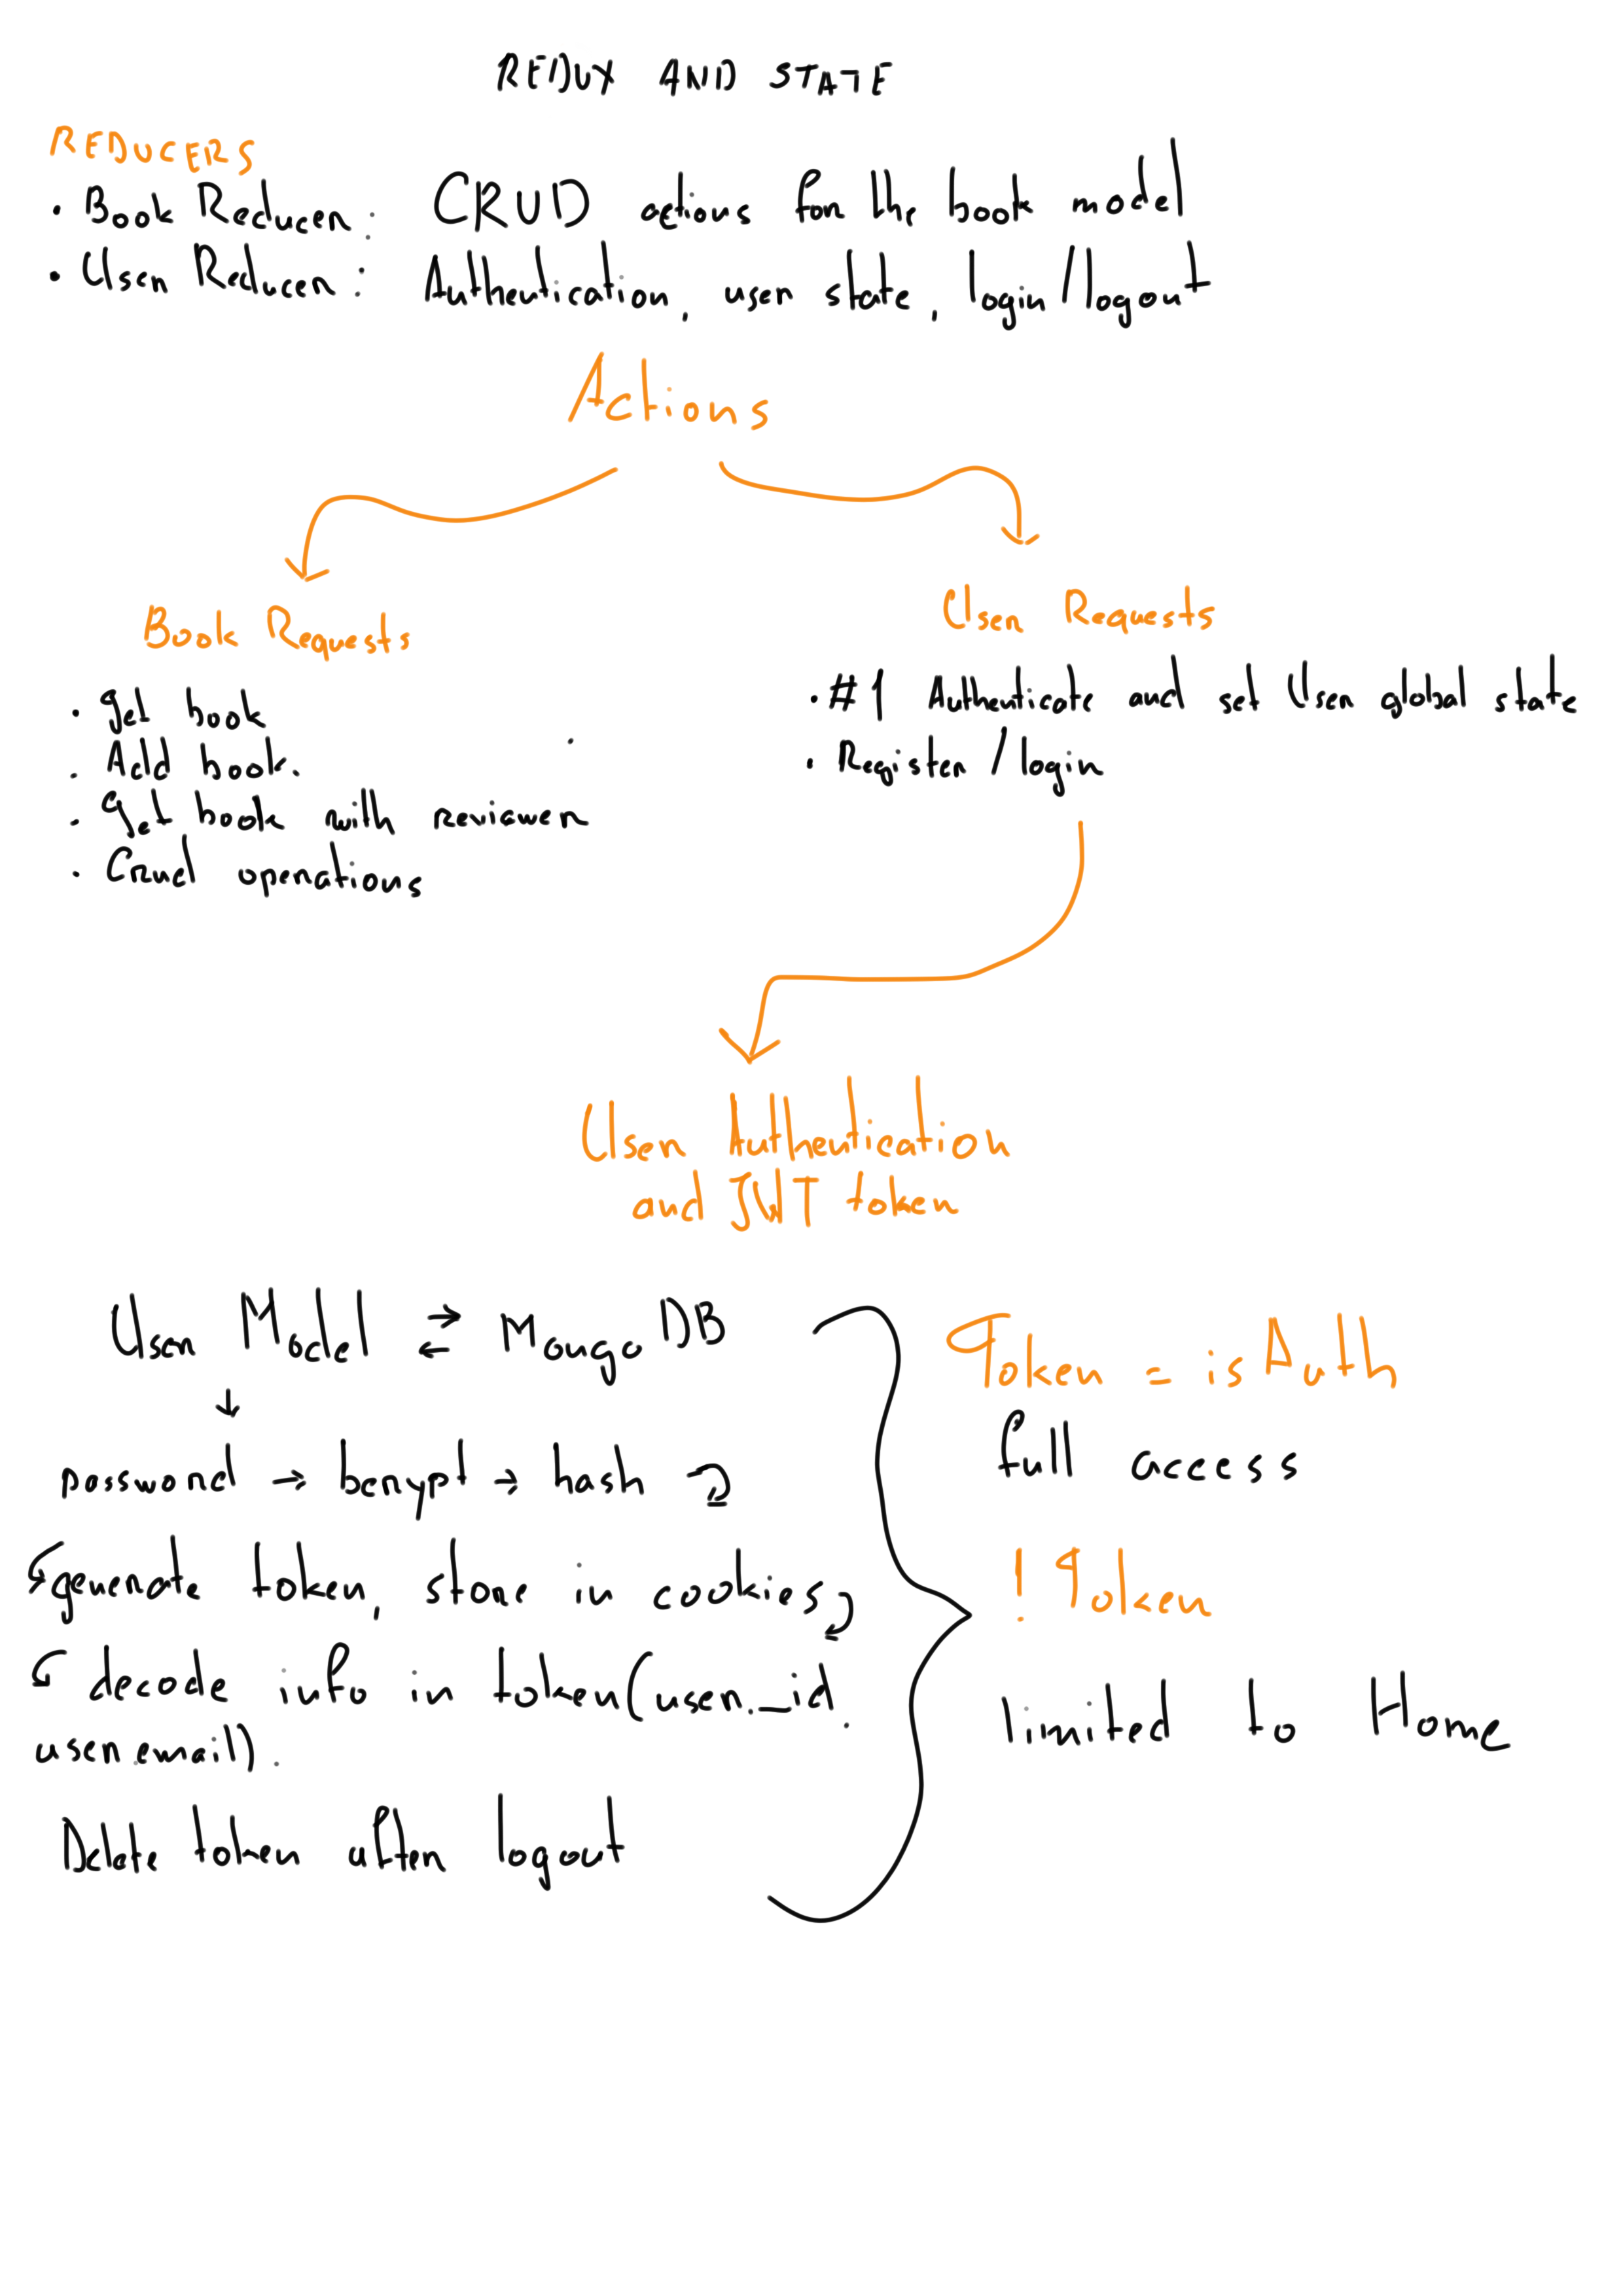 REDUX AND STATE
REDUCERS
• Book Reducer: CRUD actions for the book model
• User Reducer: Authentication, user state, login/logout
Actions
Book Requests
• get book
• Add book.
• Get book with reviewer
• Crud operations
User Requests
• #1 Authenticate and set User global state
• Register / login
User Authentication
and JWT token
User Model ⇄ MongoDB
↓
password → bcrypt → hash
generate token, store in cookies
decode info in token (user._id.
user email).
Delete token after logout
Token = isAuth
full access
! Token
limited to Home